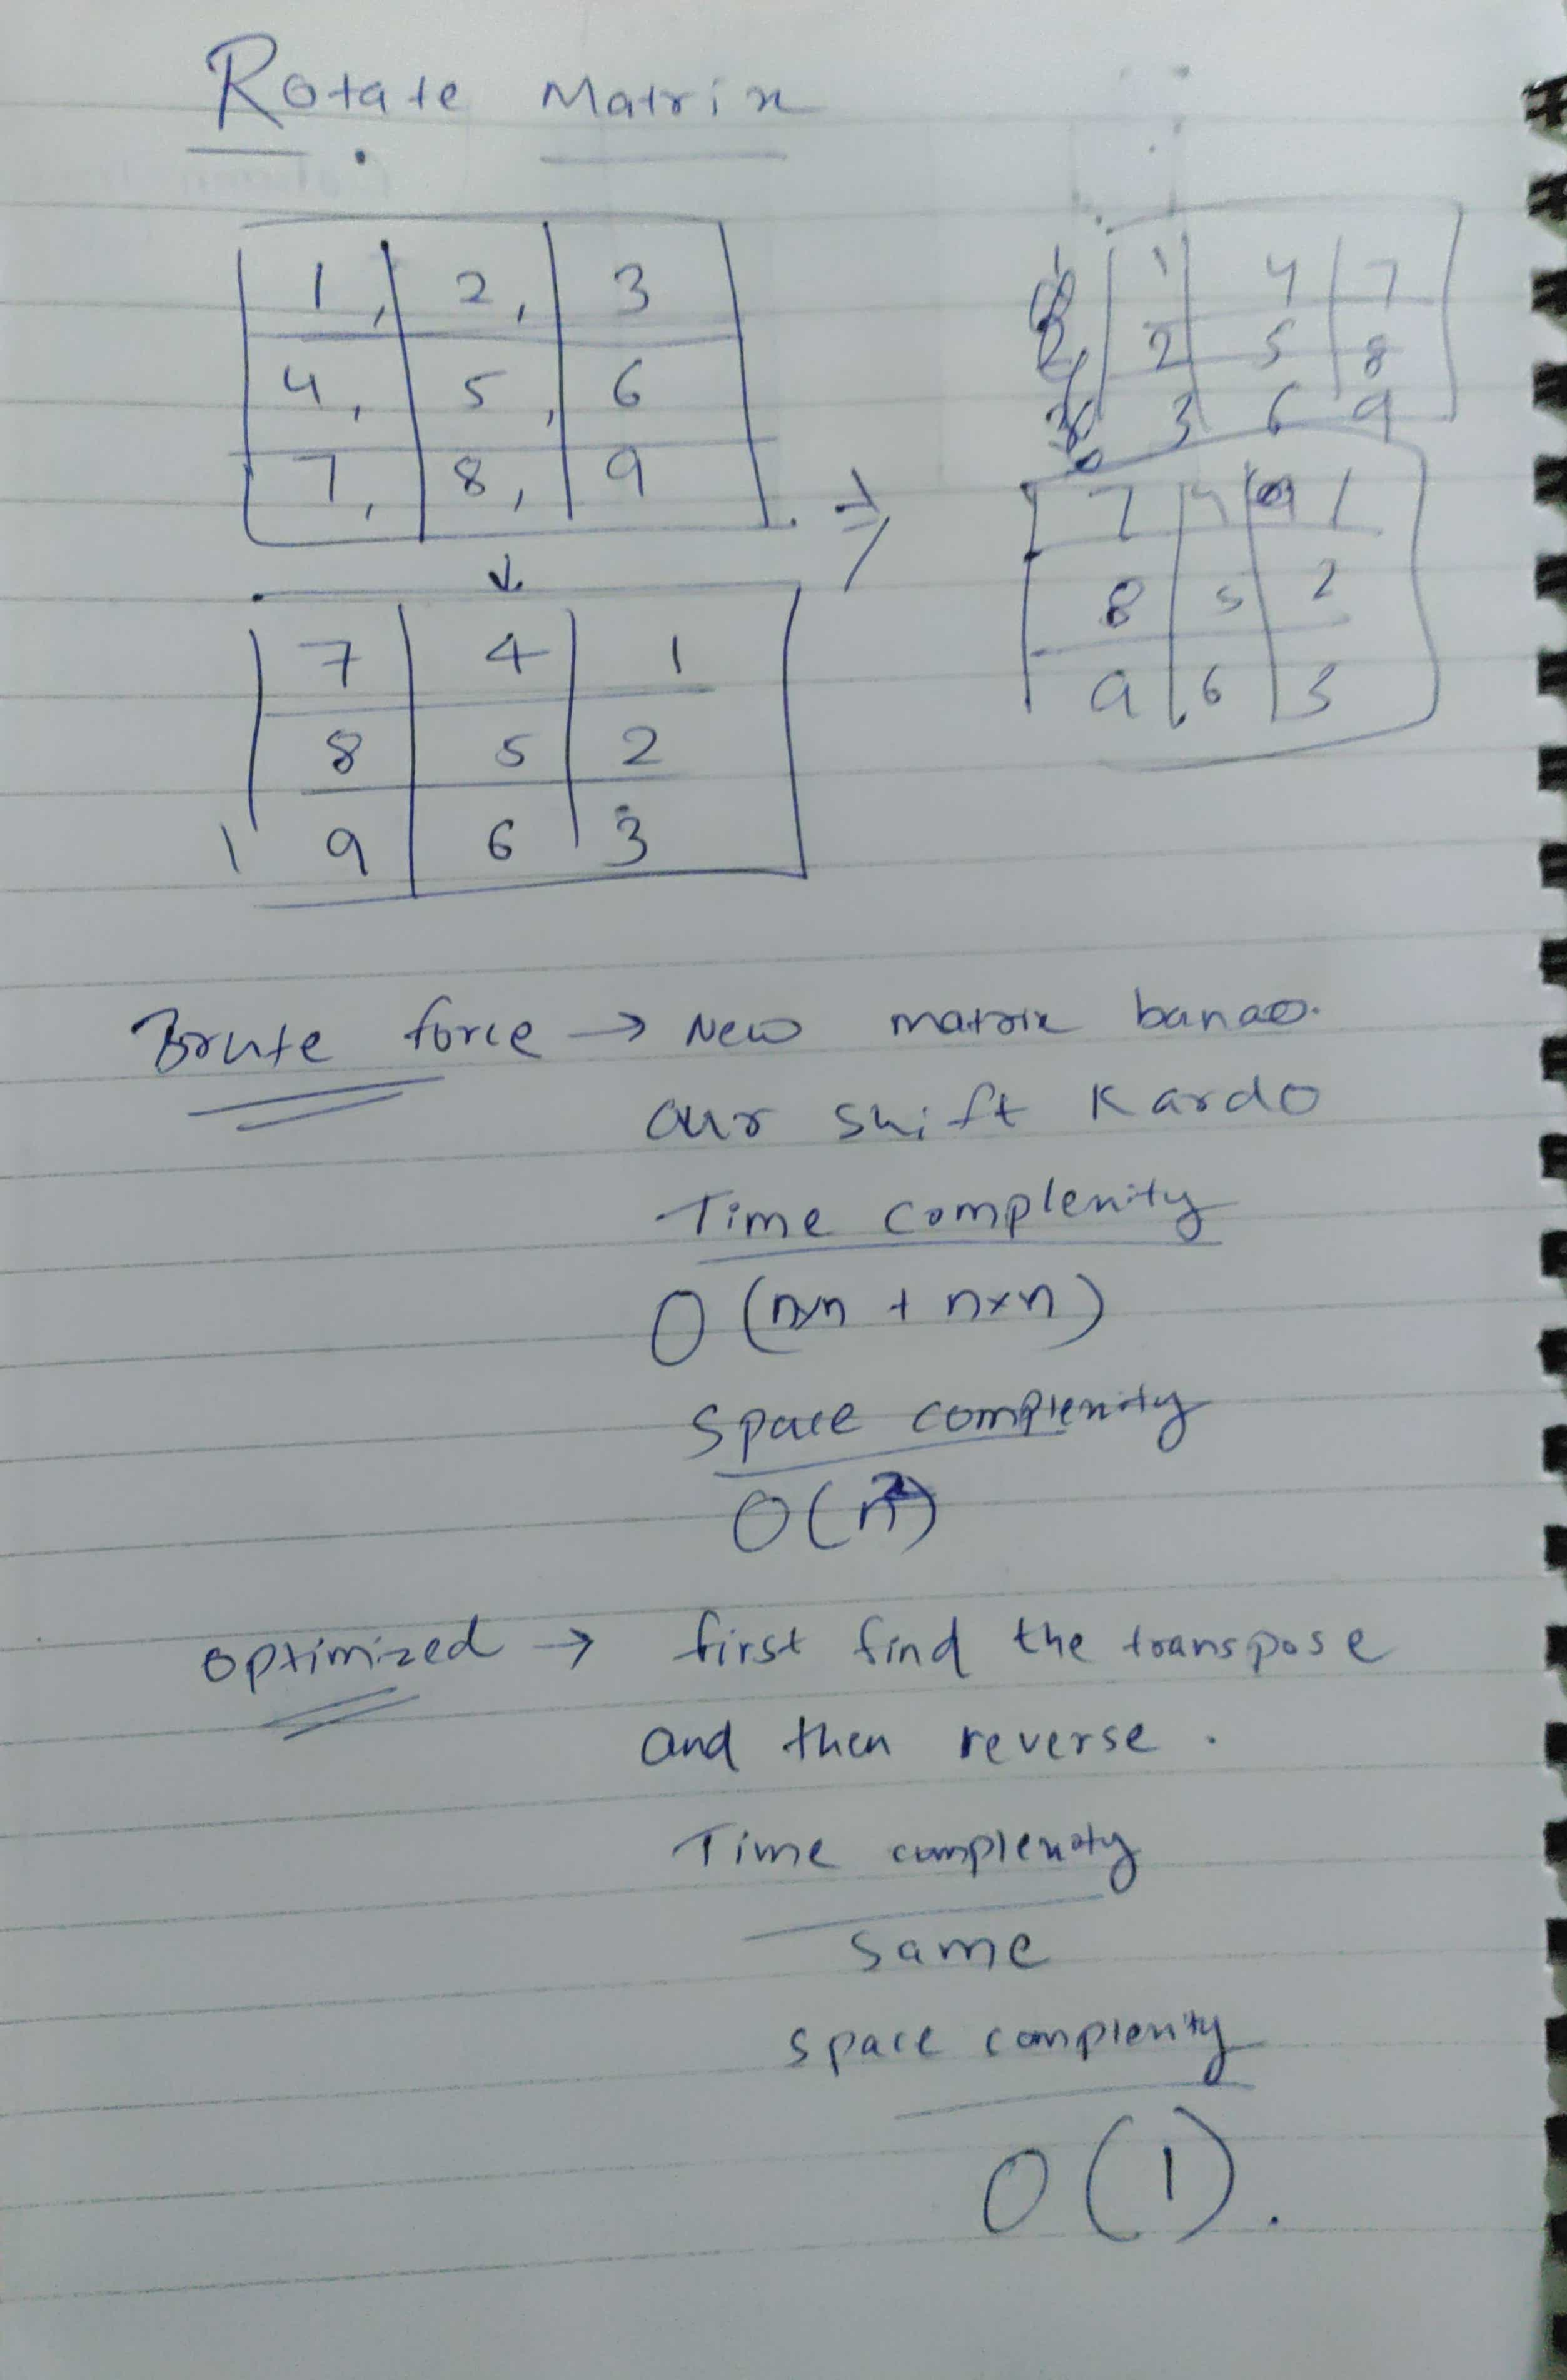 Rotate Matrix
1, 2, 3
4, 5, 6
7, 8, 9
↓
7 4 1
8 5 2
9 6 3
⇒
1 4 7
2 5 8
3 6 9
7 4 1
8 5 2
9 6 3
Brute force → New matrix banao.
aur shift Kardo
Time complexity
O (n×n + n×n)
Space complexity
O(n²)
optimized → first find the transpose
and then reverse.
Time complexity
same
space complexity
O(1).